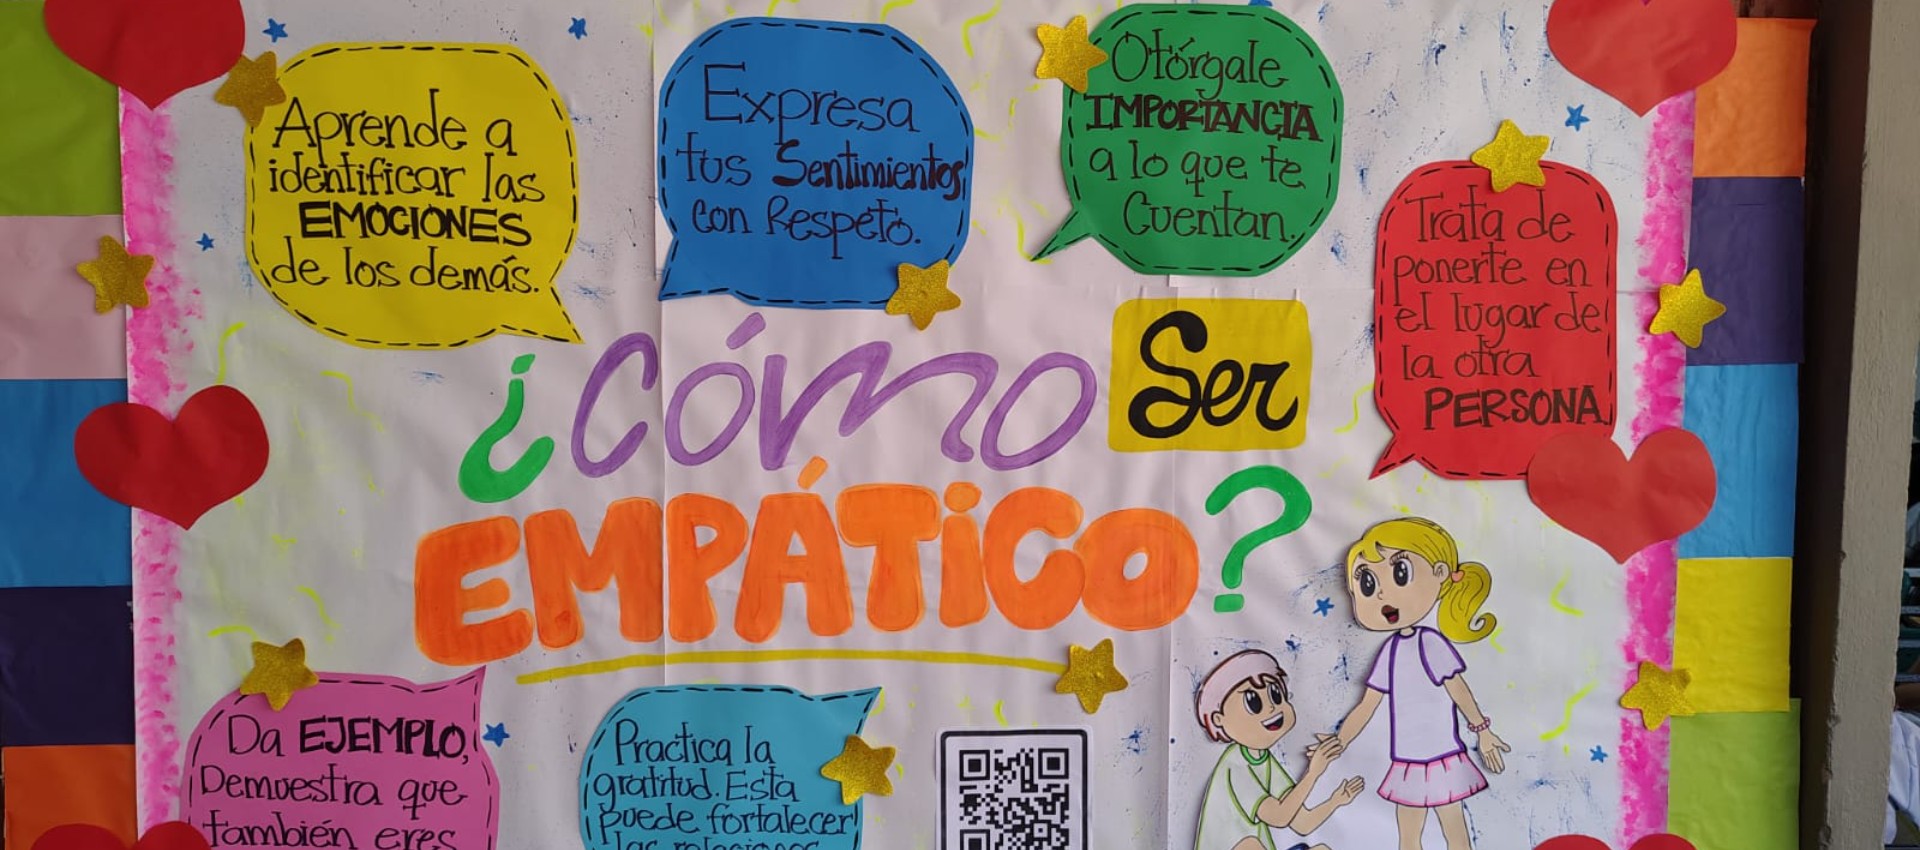 Aprende a
identificar las
EMOCIONES
de los demás.
Expresa
tus Sentimientos,
con Respeto.
Otórgale
IMPORTANCIA
a lo que te
Cuentan.
Trata de
ponerte en
el lugar de
la otra
PERSONA
¿Cómo Ser
EMPÁTICO?
Da EJEMPLO,
Demuestra que
también eres
Practica la
gratitud. Esta
puede fortalecer
las relaciones